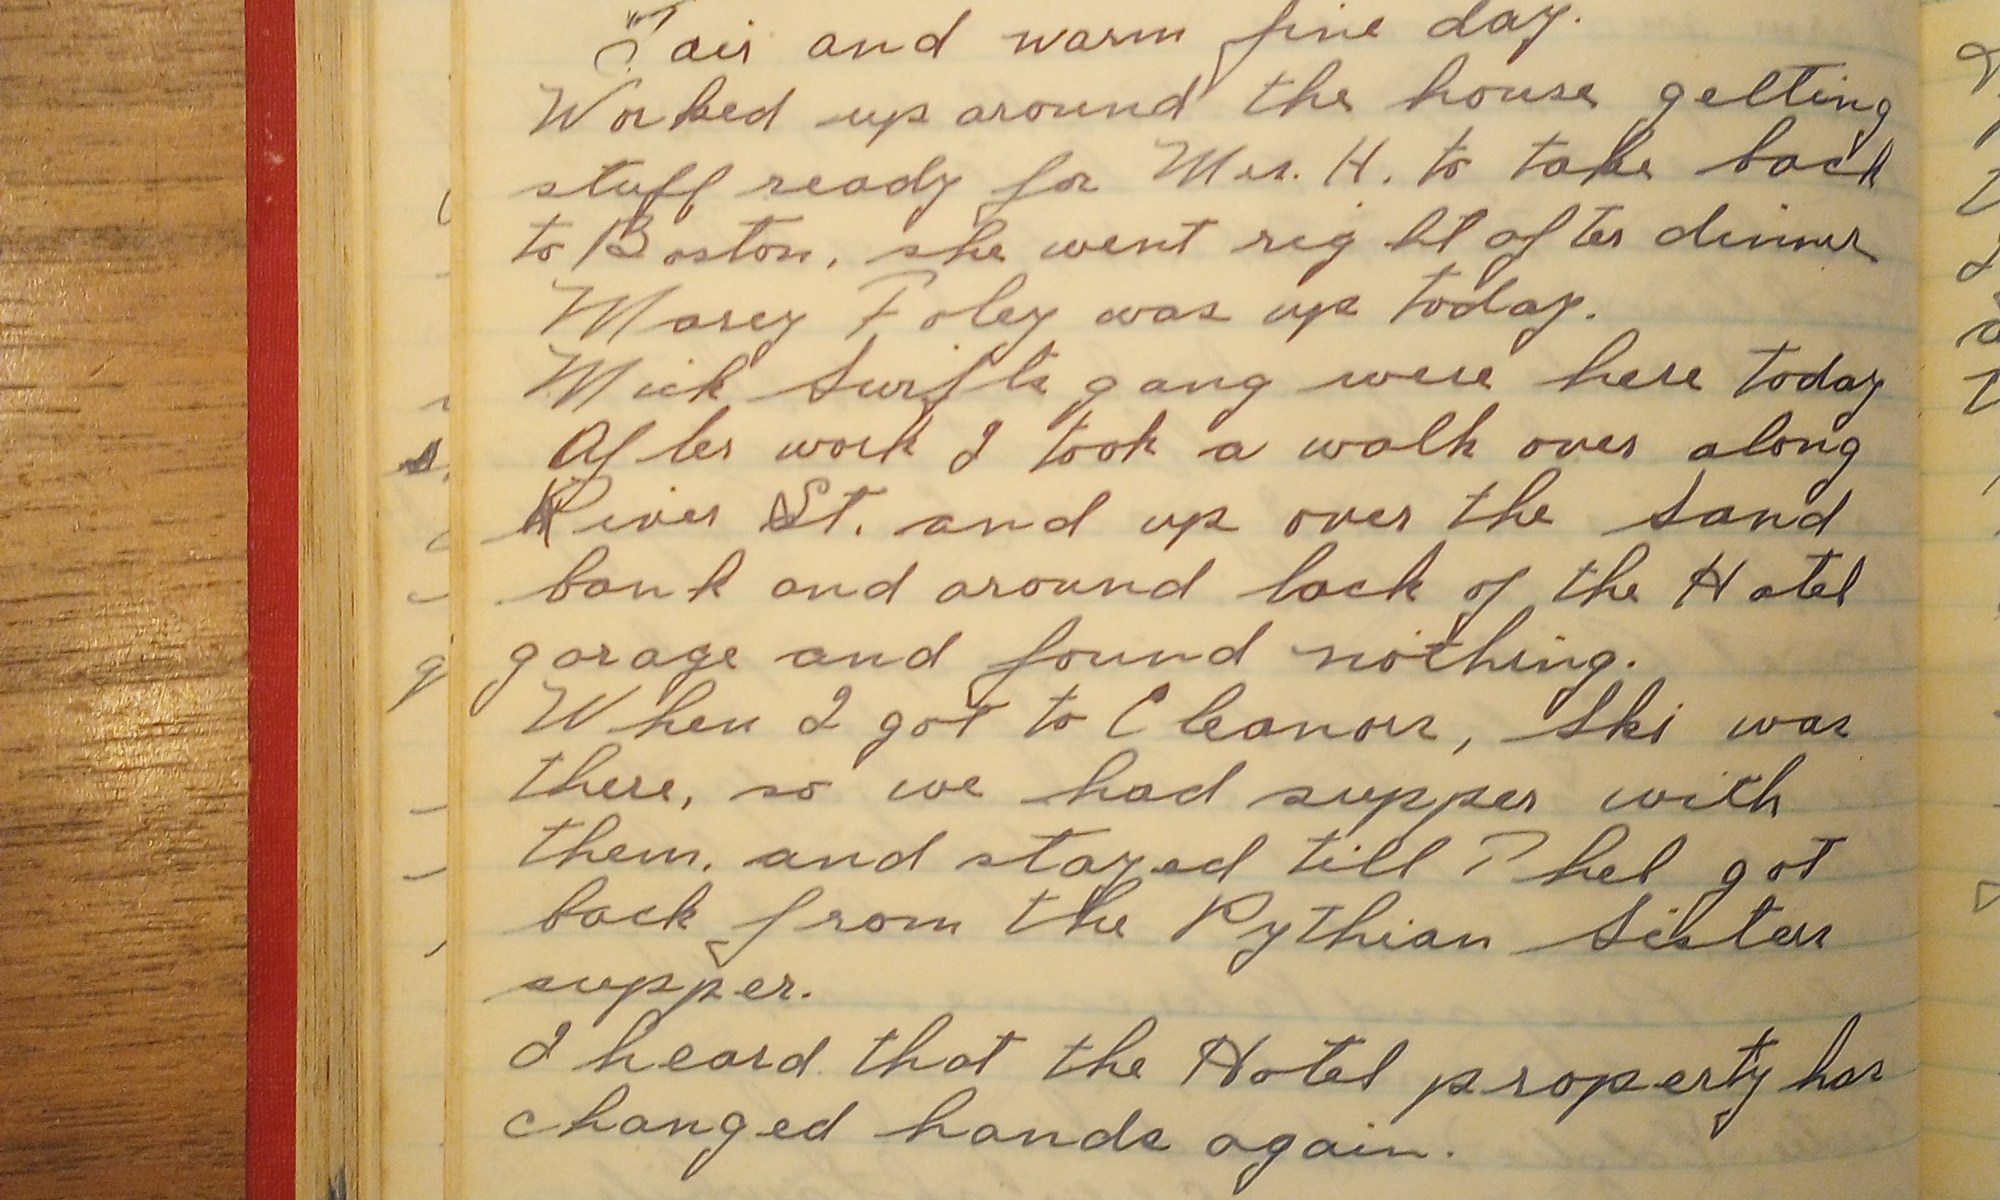 Fair and warm fine day.
Worked up around the house getting
stuff ready for Mrs. H. to take back
to Boston, she went right after dinner
Marcy Foley was up today.
Mick gang were here today
After work I took a walk over along
River St. and up over the Sand
bank and around back of the Hotel
garage and found nothing.
When I got to Eleanors, Ski was
there, so we had supper with
them, and stayed till Phel got
back from the Pythian Sisters
supper.
I heard that the Hotel property has
changed hands again.